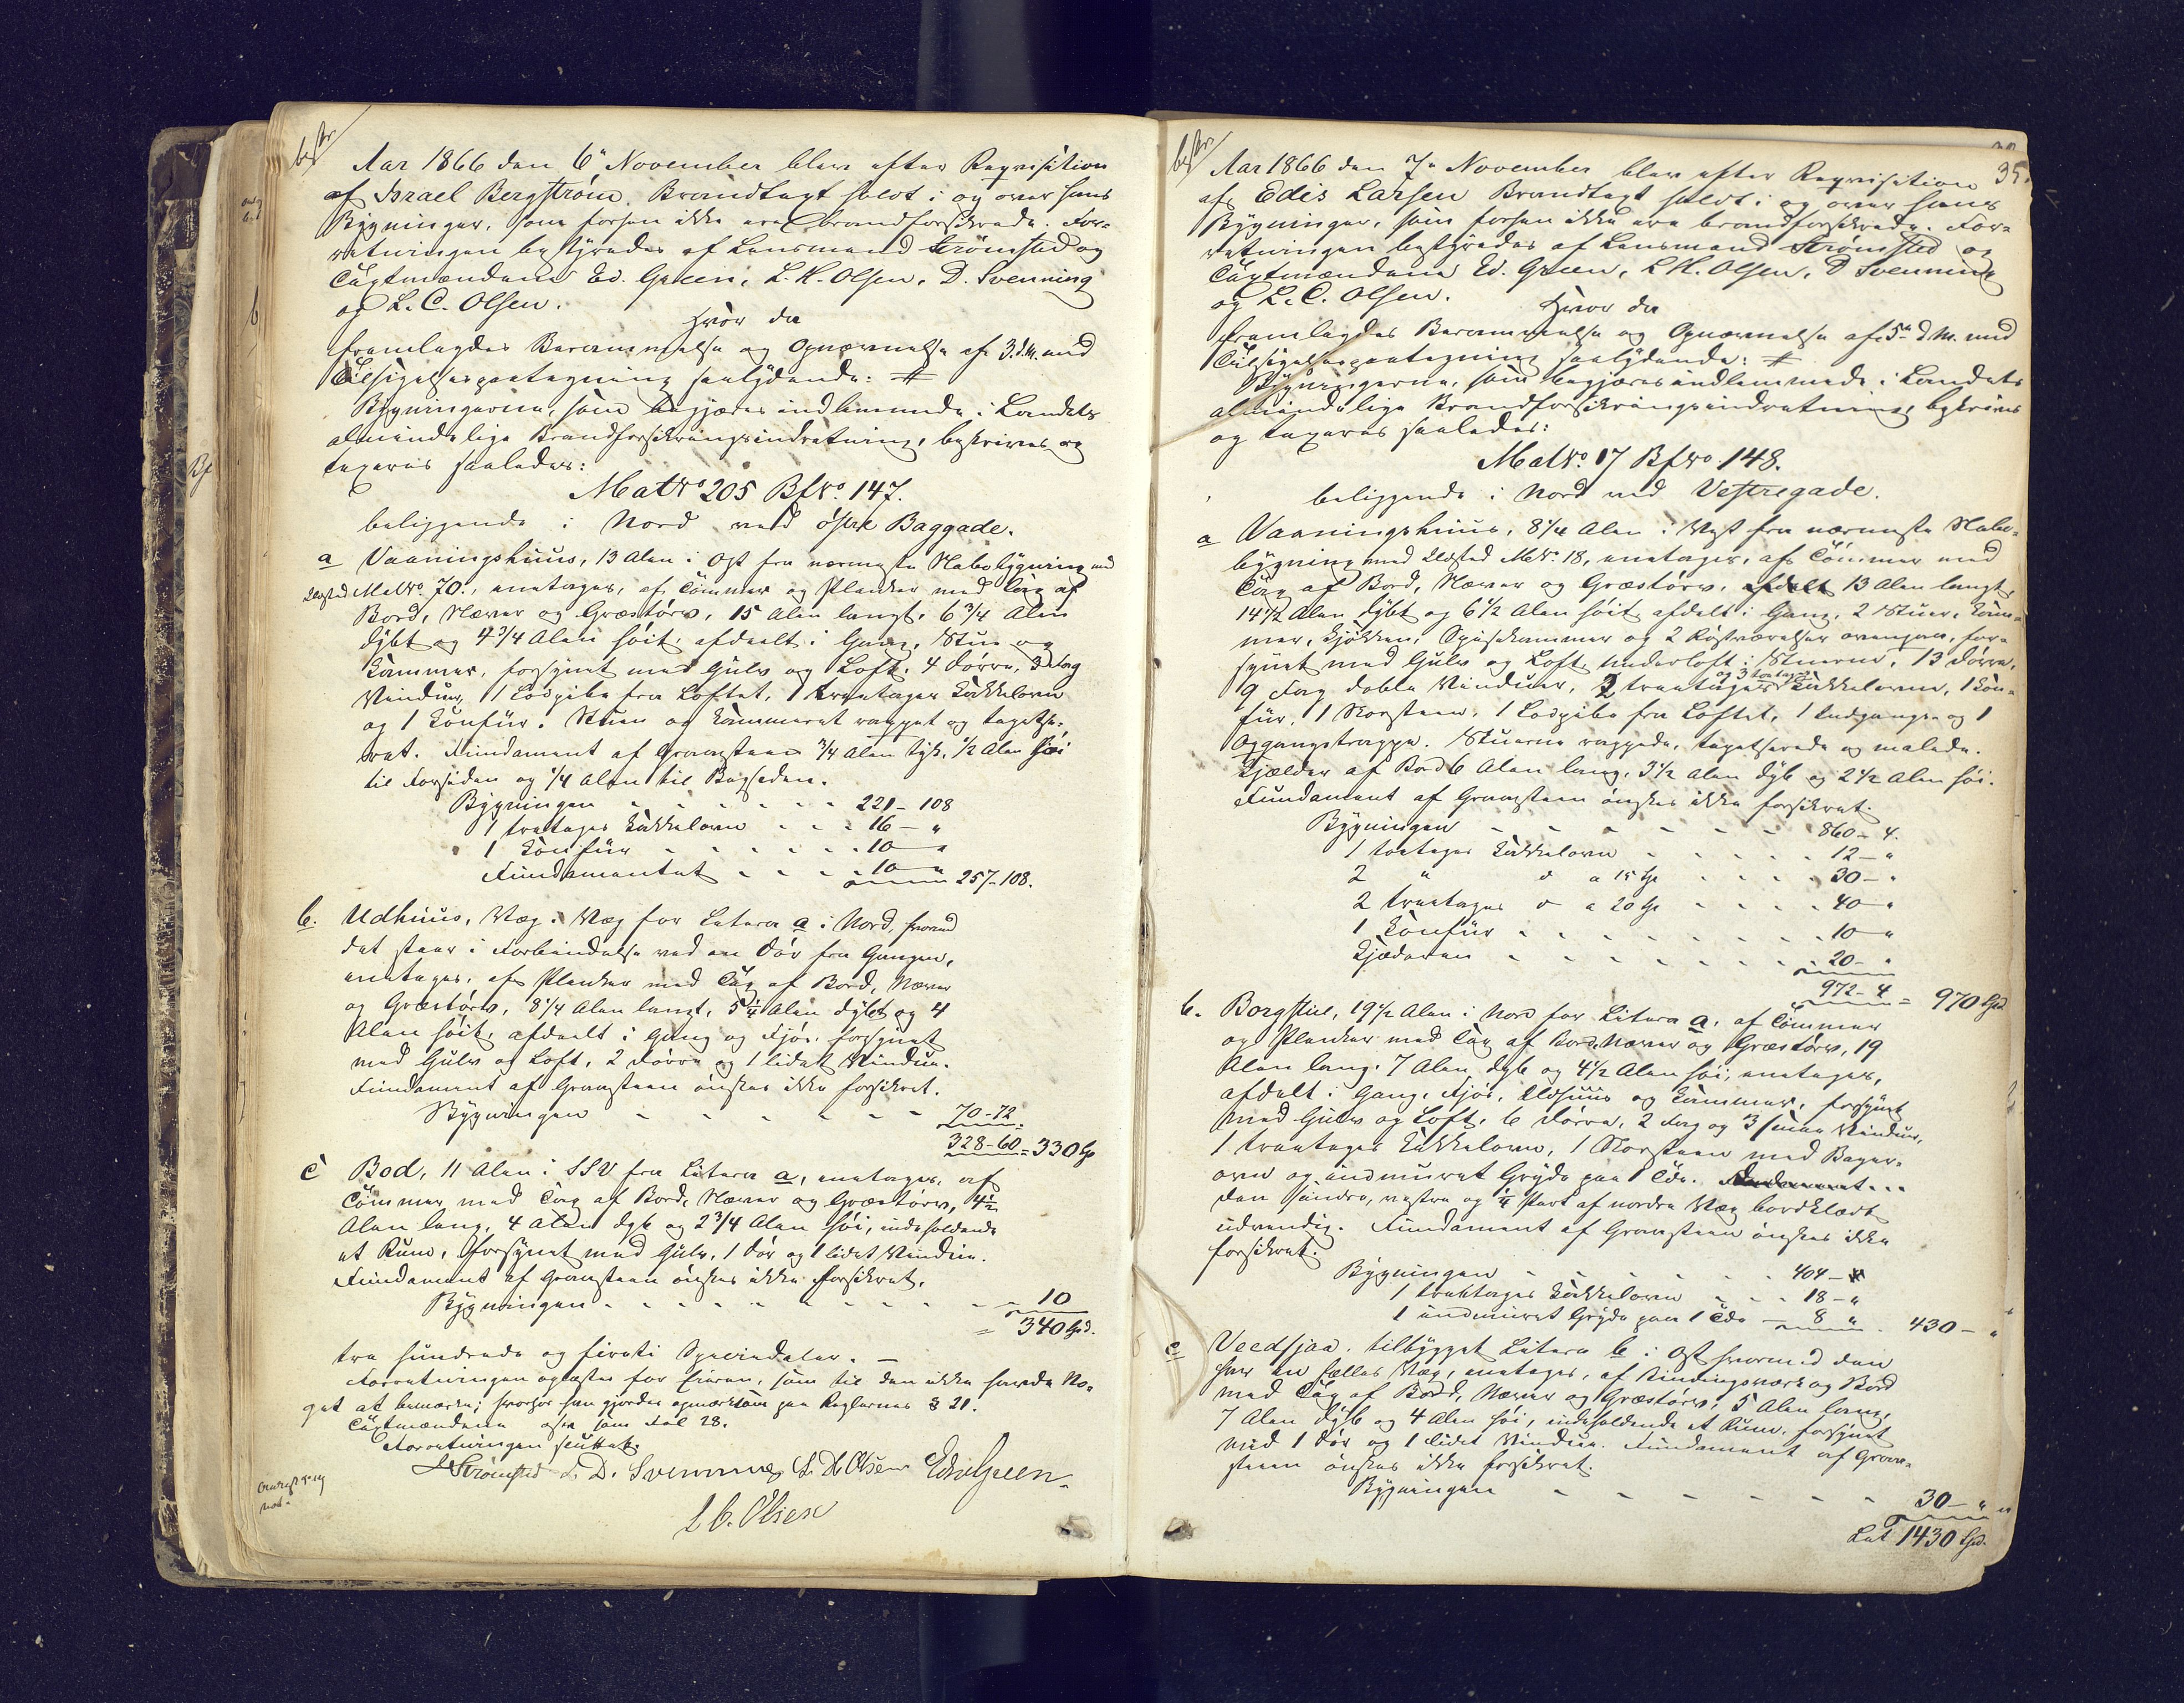 Aar 1866 den 6te November blev efter Reqvisition
af Israel Bergstrøm Brandtaxt holdt i og over hans
Bygninger, som forhen ikke ere brandforsikrede. For-
retningen bestyredes af Lensmand Strømsted og
Taxtmændene Ed. Green, L. H. Olsen, D. Svenning
og L. C. Olsen.
Hvor da
fremlagdes Berammelse og Opnævnelse af 3. d. M. med
Tilsigelsespaategning saalydende: #
Bygningerne, som begjæres indlemmede i Landets
almindelige Brandforsikringsindretning, beskrives og
taxeres saaledes:
Mat No 205 Bf No. 147.
beliggende i Nord ved østre Baggade.
a Vaaningshuus, 13 Alen i Ost fra nærmeste Nabobygning med
Ildsted Mat No. 70., eenetages, af Tømmer og Planker med Tag af
Bord, Næver og Græstørv, 15 Alen langt, 6 3/4 Alen
dybt og 4 3/4 Alen høit, afdeelt i Gang, Stue og
Kammer, forsynet med Gulv og Loft, 4 Dørre, 3 Fag
Vinduer, 1 Lodpibe fra Loftet, 1 treetages Kakkelovn
og 1 Komfür. Stuen og Kammeret rappet og tapetse-
ret. Fundament af Graasteen 3/4 Alen tyk, 1/2 Alen høi
til Forsiden og 1/4 Alen til Bagsiden.
Bygningen - - - - - - 221 - 108
1 treetages Kakkelovn - - - 16 - "
1 Komfür - - - - - - 10 - "
Fundamentet - - - - 10 - "
257 - 108.
b. Udhuus, Væg i Væg for Litera a i Nord, hvormed
det staar i Forbindelse ved en Dør fra Gangen,
eenetages, af Planker med Tag af Bord, Næver
og Græstørv, 8 1/4 Alen langt, 5 1/4 Alen dybt og 4
Alen høit, afdeelt i Gang og Fjøs, forsynet
med Gulv og Loft, 2 Dørre og 1 lidet Vindue.
Fundament af Graasteen ønskes ikke forsikret.
Bygningen - - - - - - 70 - 72
328 - 60 = 330 Spd
c Bod, 11 Alen i SSV fra Litera a, eenetages, af
Tømmer med Tag af Bord, Næver og Græstørv, 4 1/2
Alen lang, 4 Alen dyb og 2 3/4 Alen høi, indeholdende
et Rum, forsynet med Gulv, 1 Dør og 1 lidet Vindue.
Fundament af Graasteen ønskes ikke forsikret.
Bygningen - - - - - - - - - 10
= 340 Spd.
tre hundrede og firti Speciedaler. -
Forretningen oplæstes for Eieren, som til den ikke havde No-
get at bemærke; hvorhos han gjordes opmærksom paa Reglernes § 21.
Taxtmændene som Fol 28.
Forretningen sluttet.
Strømsted D. Svenning L. H. Olsen Edv Green
L C. Olsen
35.
Aar 1866 den 7de November blev efter Reqvisition
af Edis Larsen Brandtaxt holdt i og over hans
Bygninger, som forhen ikke ere brandforsikrede. For-
retningen bestyredes af Lensmand Strømsted og
Taxtmændene Ed. Green, L H. Olsen, D Svenning
og L. C. Olsen.
Hvor da
fremlagdes Berammelse og Opnævnelse af 5te d. M. med
Tilsigelsespaategning saalydende: #
Bygningerne, som begjæres indlemmede i Landets
almindelige Brandforsikringsindretning, beskrives
og taxeres saaledes:
Mat No. 17 Bf No. 148.
beliggende i Nord ved Vestregade.
a Vaaningshuus, 8 1/4 Alen i Vest fra nærmeste Nabo-
bygning med Ildsted M No. 18, eenetages, af Tømmer med
Tag af Bord, Næver og Græstørv, 13 Alen langt,
14 1/2 Alen dybt og 6 1/2 Alen høit, afdelt i Gang, 2 Stuer, Kam-
mer, Kjøkken, Spisekammer og 2 Qvistværelser ovenpaa, for-
synet med Gulv og Loft, Underloft i Stuerne, 13 Dørre,
9 Fag doble Vinduer, 2 treetages og 3 toetages Kakkelovne, 1 Kom-
für, 1 Skorsteen, 1 Lodpibe fra Loftet, 1 Indgangs- og 1
Opgangstrappe. Stuerne rappede, tapetserede og malede.
Kjælder af Bord 6 Alen lang, 3 1/2 Alen dyb og 2 1/2 Alen høi.
Fundament af Graasteen ønskes ikke forsikret.
Bygningen - - - - - - 860 - 4.
1 toetages Kakkelovn - - - - - 12 - "
2 " d a 15 Sp - - - - 30 - "
2 treetages d a 20 Sp - - - - 40 - "
1 Komfür - - - - - - - 10 - "
Kjælderen - - - - - - - 20 - "
972 - 4 = 970 Spd
b. Borgstue, 19 1/2 Alen i Nord for Litera a, af Tømmer
og Planker med Tag af Bord, Næver og Græstørv, 19
Alen lang, 7 Alen dyb og 4 1/2 Alen høi, eenetages,
afdelt i Gang, Fjøs, Ildhuus og Kammer, forsynet
med Gulv og Loft, 6 Dørre, 2 Fag og 3 smaa Vinduer,
1 treetages Kakkelovn, 1 Skorsteen med Bager-
ovn og indmuret Gryde paa 1 Tde. Fundament...
Den søndre, vestre og 1/4 Part af nordre Væg bordklædt
udvendig. Fundament af Graasteen ønskes ikke
forsikret.
Bygningen - - - - - - - 404 - "
1 treetages Kakkelovn - - - 18 - "
1 indmuret Gryde paa 1 Tde - 8 " . 430 - "
c Veedsjaa, tilbygget Litera b i Ost hvormed den
har en fælles Væg, eenetages, af Bindingsværk og Bord
med Tag af Bord, Næver og Græstørv, 5 Alen lang,
7 Alen dyb og 4 Alen høi, indeholdende et Rum, forsynet
med 1 Dør og 1 lidet Vindue. Fundament af Graa-
steen ønskes ikke forsikret.
Bygningen - - - - - - - 30 - "
Lat 1430 Spd.